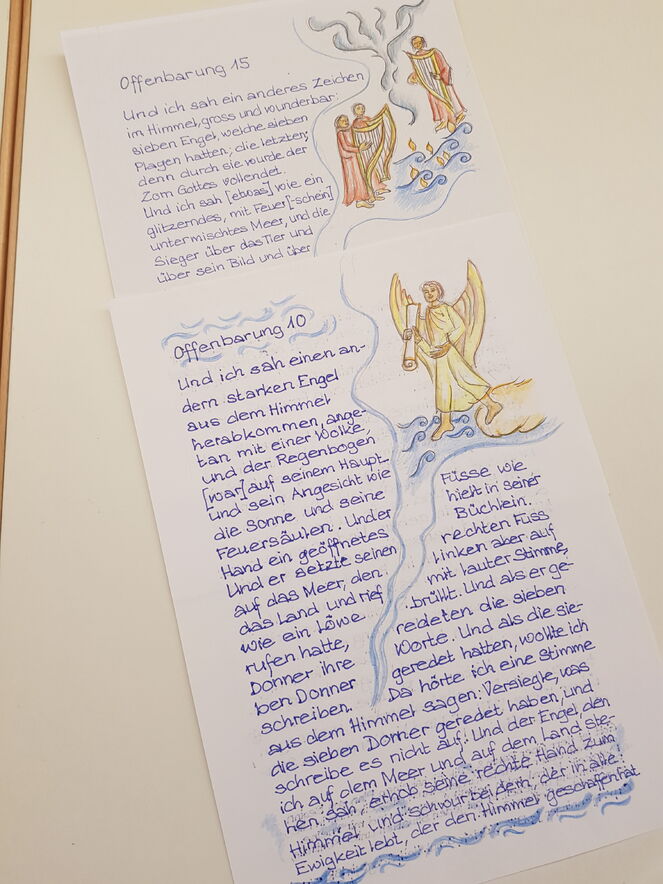 Offenbarung 15
Und ich sah ein anderes Zeichen
im Himmel, gross und wunderbar:
sieben Engel, welche sieben
Plagen hatten; die letzten;
denn durch sie wurde der
Zorn Gottes vollendet.
Und ich sah [etwas] wie ein
glitzerndes, mit Feuer[-schein]
untermischtes Meer, und die
Sieger über das Tier und
über sein Bild und über
Offenbarung 10
Und ich sah einen an-
dern starken Engel
aus dem Himmel
herabkommen, ange-
tan mit einer Wolke,
und der Regenbogen
[war] auf seinem Haupt
und sein Angesicht wie
die Sonne und seine Füsse wie
Feuersäulen. Und er hielt in seiner
Hand ein geöffnetes Büchlein.
Und er setzte seinen rechten Fuss
auf das Meer, den linken aber auf
das Land und rief mit lauter Stimme,
wie ein Löwe brüllt. Und als er ge-
rufen hatte, redeten die sieben
Donner ihre Worte. Und als die sie-
ben Donner geredet hatten, wollte ich
schreiben. Da hörte ich eine Stimme
aus dem Himmel sagen: Versiegle, was
die sieben Donner geredet haben, und
schreibe es nicht auf! Und der Engel, den
ich auf dem Meer und auf dem Land ste-
hen sah, erhob seine rechte Hand zum
Himmel und schwur bei dem, der in alle
Ewigkeit lebt, der den Himmel geschaffen hat